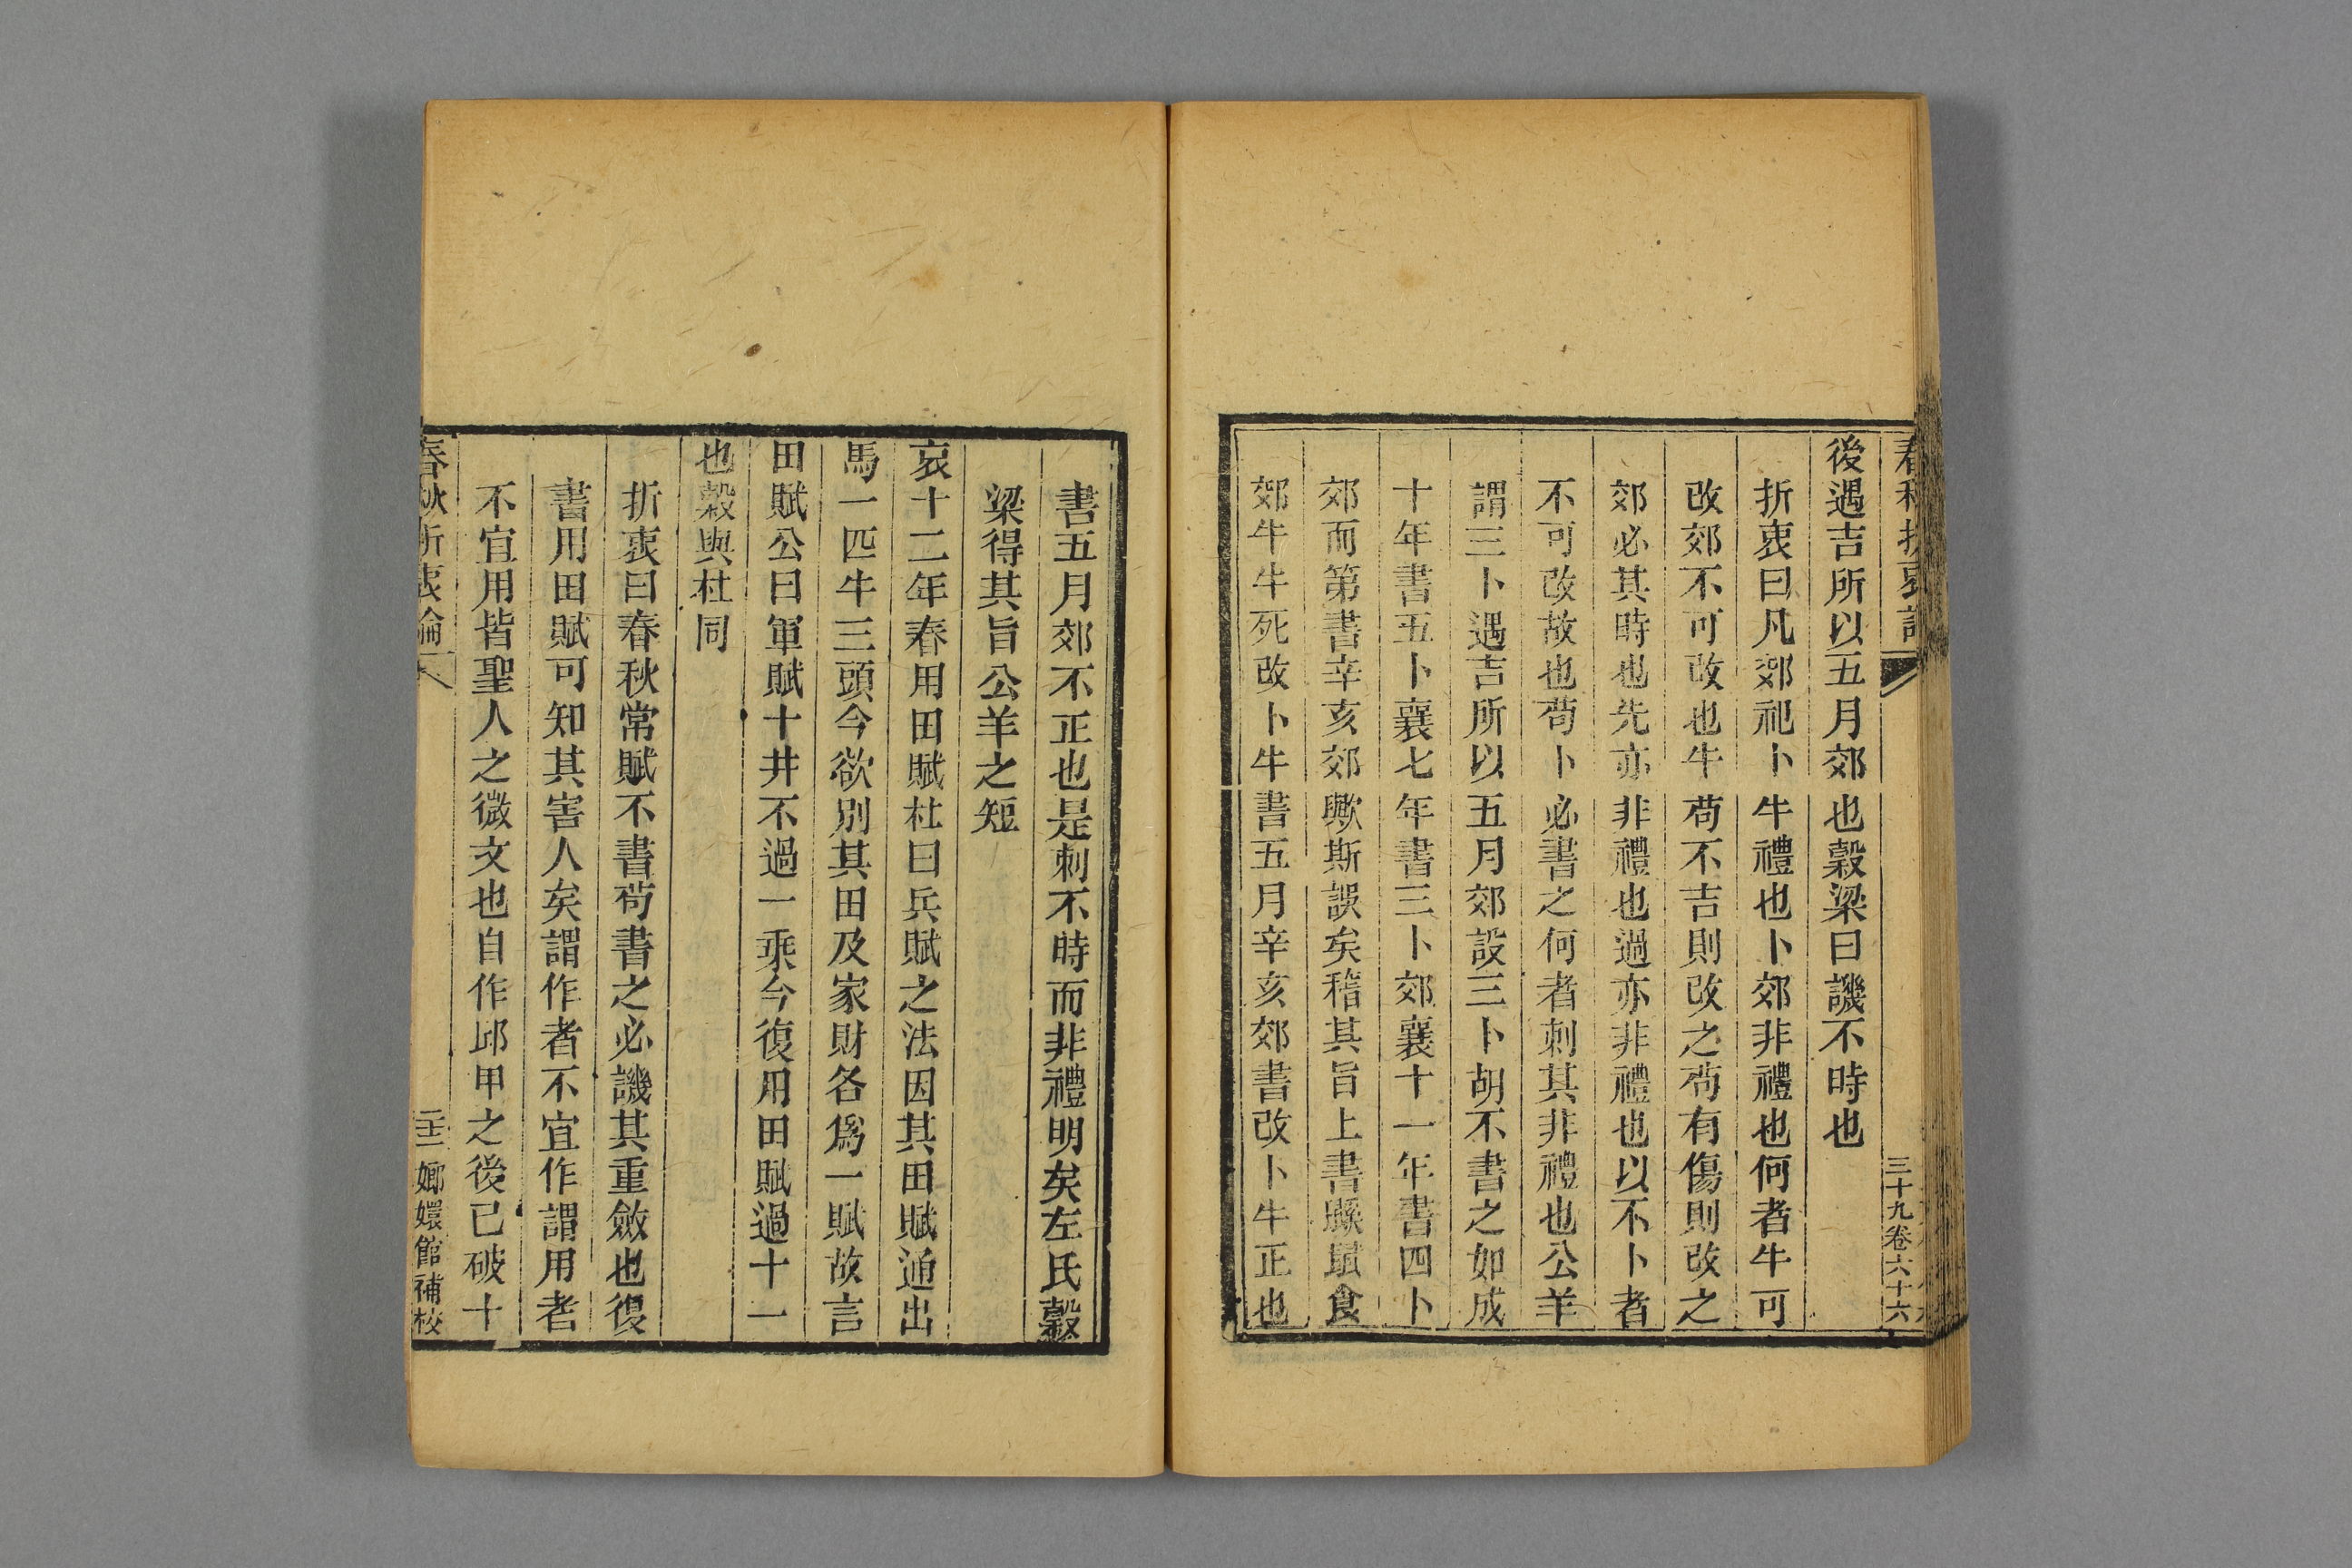 三十九卷六十六
後遇吉所以五月郊也穀梁曰譏不時也
折衷曰凡郊祀卜牛禮也卜郊非禮也何者牛可
改郊不可改也牛苟不吉則改之苟有傷則改之
郊必其時也先亦非禮也過亦非禮也以不卜者
不可改故也苟卜必書之何者刺其非禮也公羊
謂三卜遇吉所以五月郊設三卜胡不書之如成
十年書五卜襄七年書三卜郊襄十一年書四卜
郊而第書辛亥郊歟斯誤矣稽其旨上書鼷鼠食
郊牛牛死改卜牛書五月辛亥郊書改卜牛正也
書五月郊不正也是刺不時而非禮明矣左氏穀
梁得其旨公羊之短
哀十二年春用田賦杜曰兵賦之法因其田賦通出
馬一匹牛三頭今欲別其田及家財各爲一賦故言
田賦公曰軍賦十井不過一乘今復用田賦過十一
也穀與杜同
折衷曰春秋常賦不書苟書之必譏其重斂也復
書用田賦可知其害人矣謂作者不宜作謂用者
不宜用皆聖人之微文也自作邱甲之後已破十
春秋折衷論 嫏嬛館補校